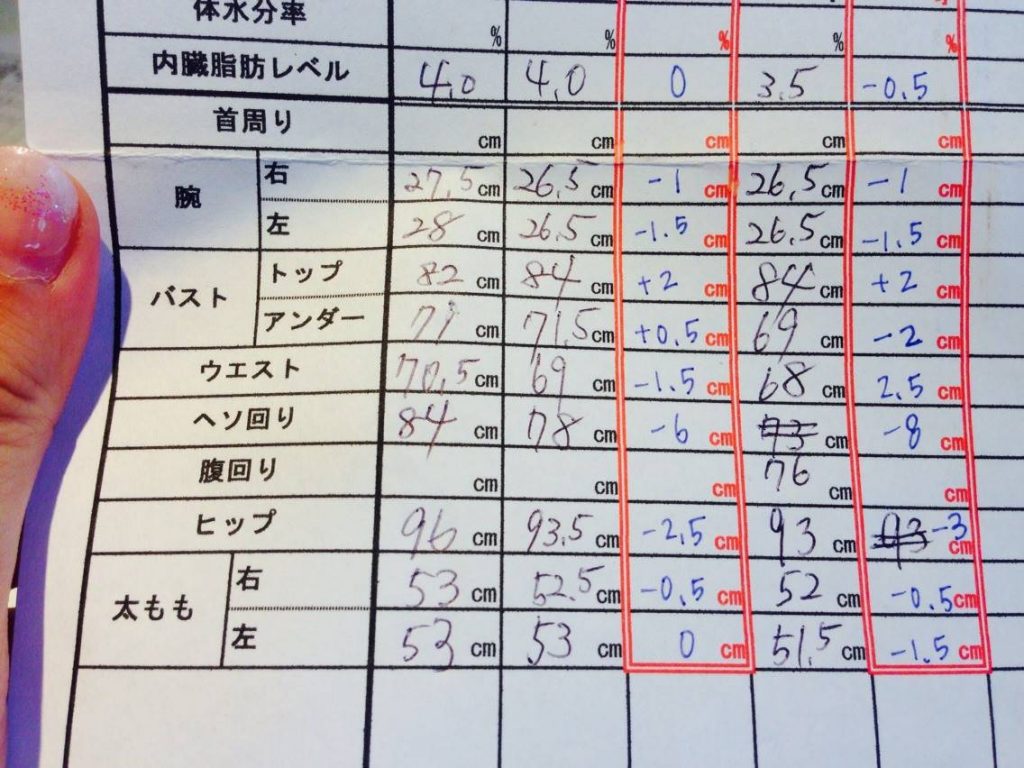 体水分率 % % % % %
内臓脂肪レベル 4.0 4.0 0 3.5 -0.5
首周り cm cm cm cm cm
腕 右 27.5 cm 26.5 cm -1 cm 26.5 cm -1 cm
左 28 cm 26.5 cm -1.5 cm 26.5 cm -1.5 cm
バスト トップ 82 cm 84 cm +2 cm 84 cm +2 cm
アンダー 71 cm 71.5 cm +0.5 cm 69 cm -2 cm
ウエスト 70.5 cm 69 cm -1.5 cm 68 cm 2.5 cm
ヘソ回り 84 cm 78 cm -6 cm 93 cm -8 cm
腹回り cm cm cm 76 cm cm
ヒップ 96 cm 93.5 cm -2.5 cm 93 cm 93 -3 cm
太もも 右 53 cm 52.5 cm -0.5 cm 52 cm -0.5 cm
左 53 cm 53 cm 0 cm 51.5 cm -1.5 cm